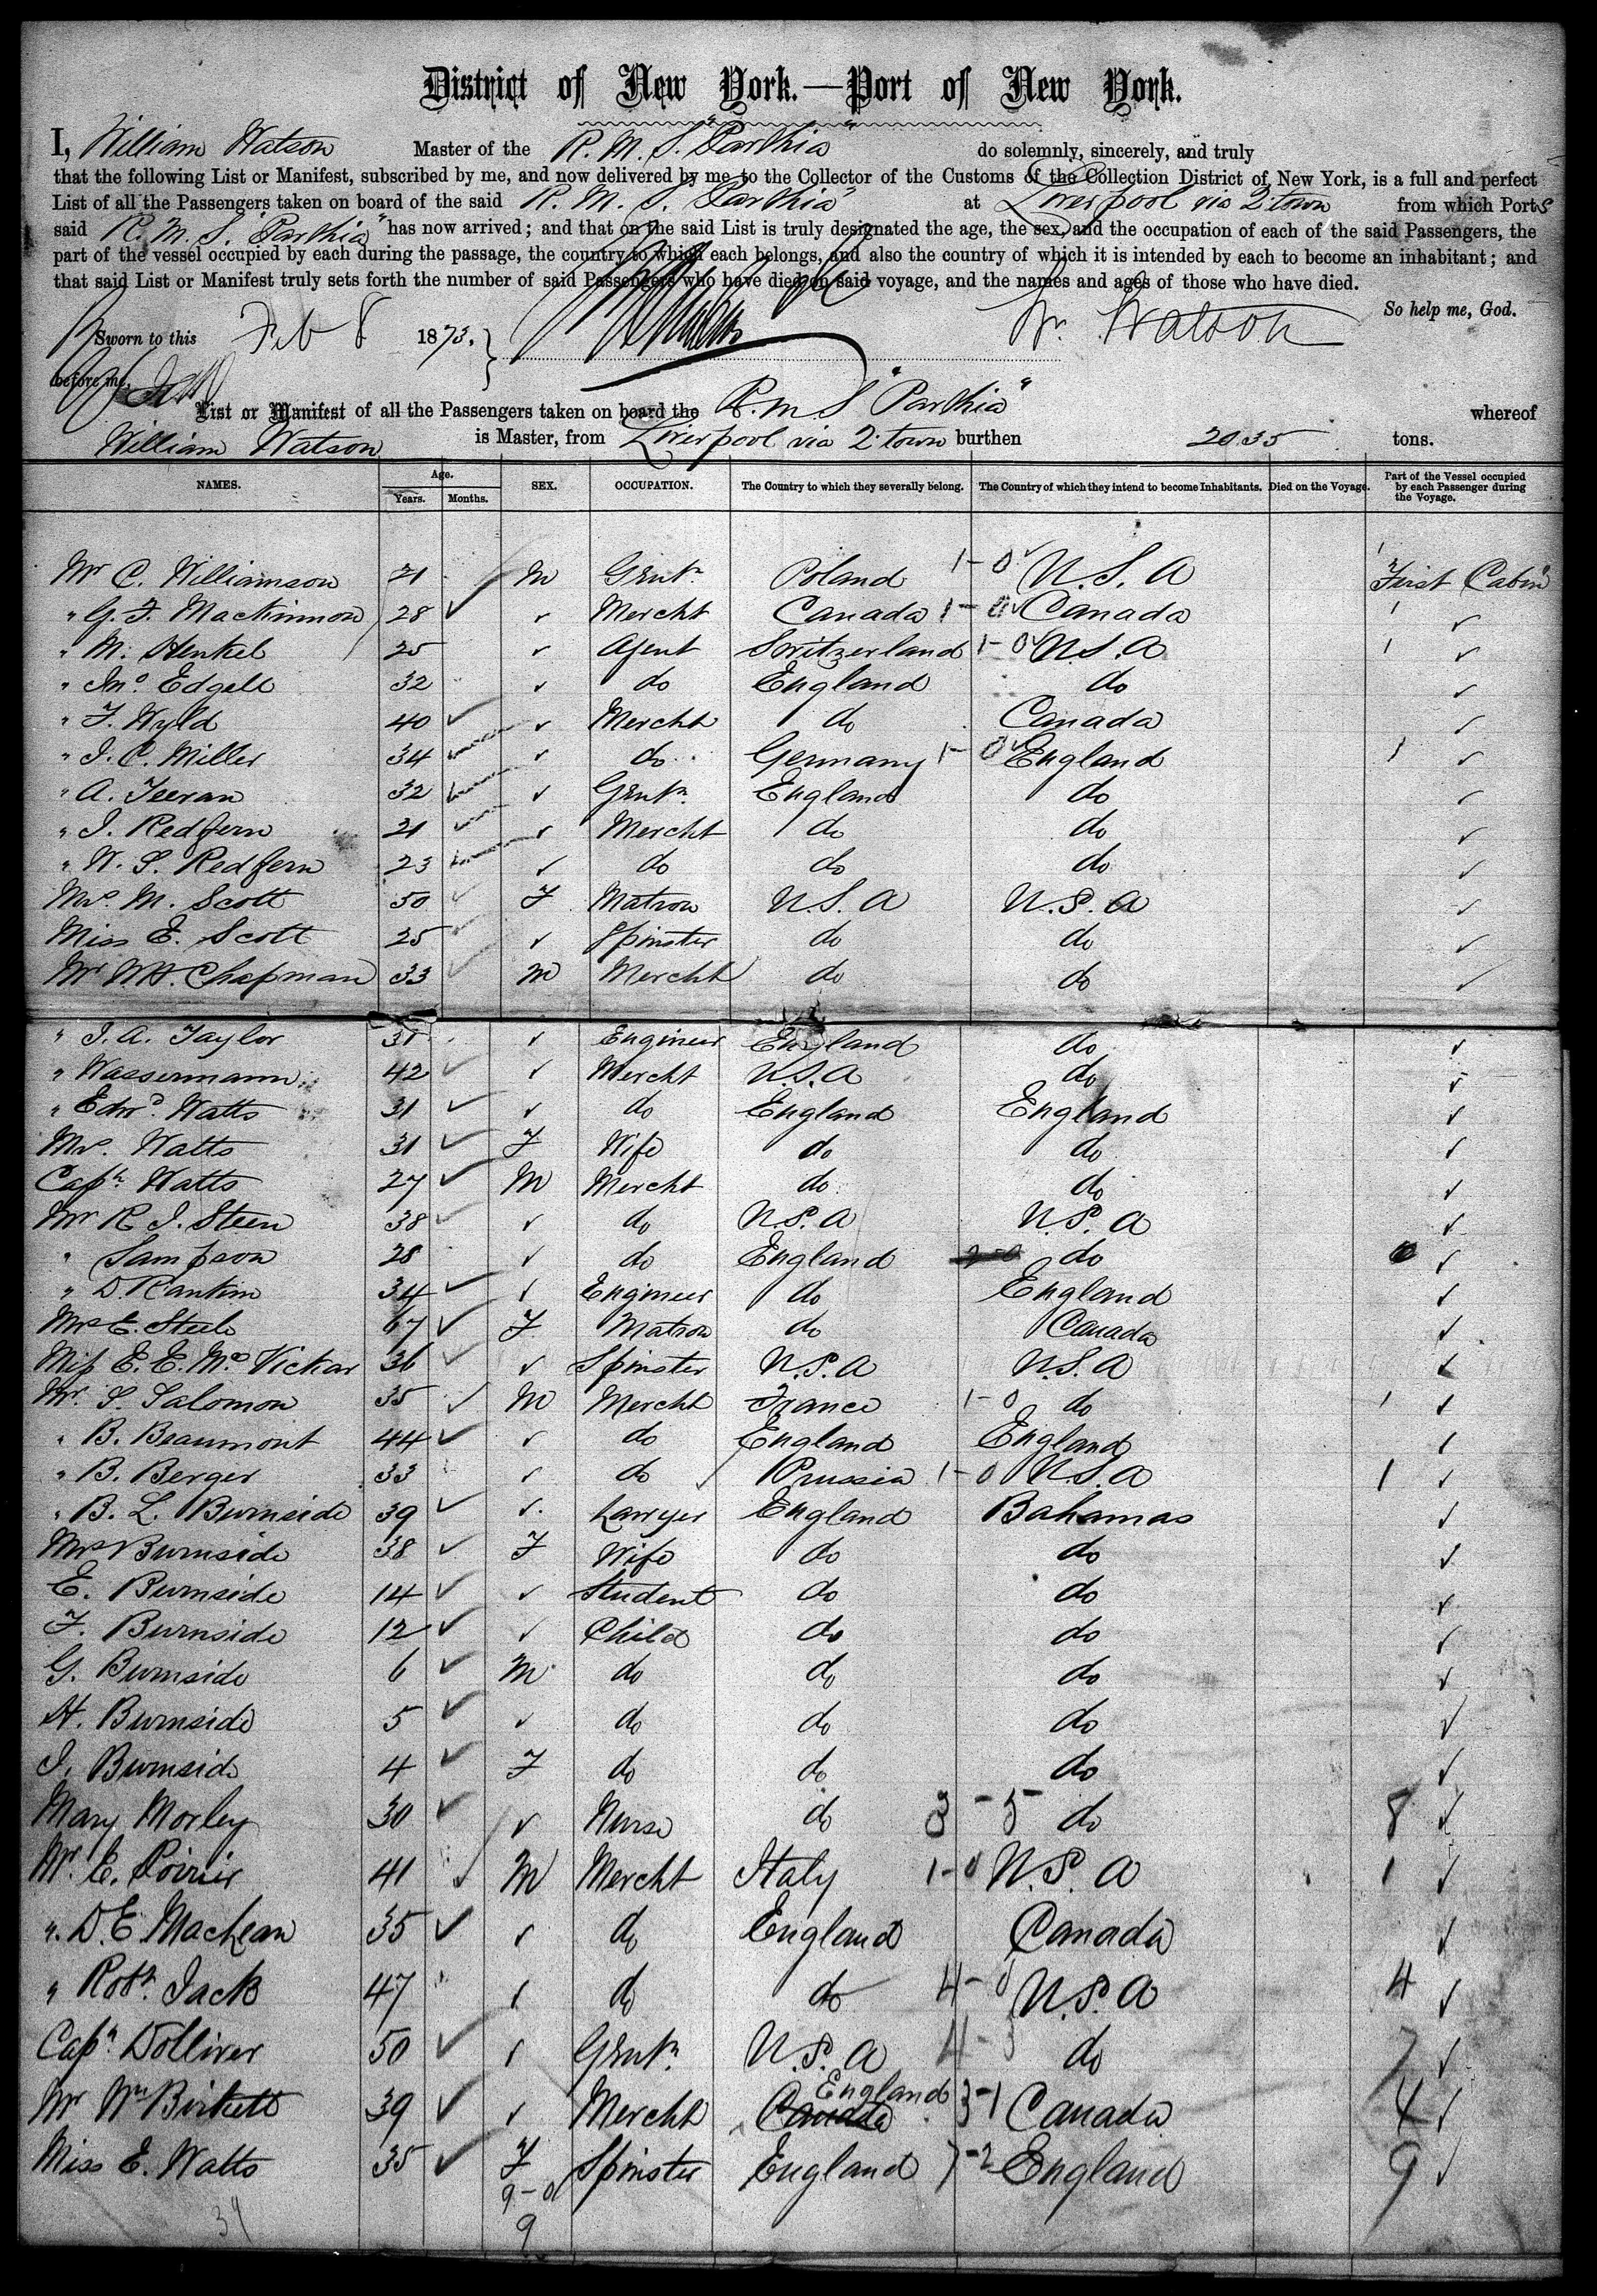 District of New York.—Port of New York.
I, William Watson Master of the R. M. S. "Parthia" do solemnly, sincerely, and truly
that the following List or Manifest, subscribed by me, and now delivered by me to the Collector of the Customs of the Collection District of New York, is a full and perfect
List of all the Passengers taken on board of the said R. M. S. Parthia" at Liverpool via Q.town from which Ports
said R. M. S. "Parthia" has now arrived; and that on the said List is truly designated the age, the sex, and the occupation of each of the said Passengers, the
part of the vessel occupied by each during the passage, the country to which each belongs, and also the country of which it is intended by each to become an inhabitant; and
that said List or Manifest truly sets forth the number of said Passengers who have died on said voyage, and the names and ages of those who have died.
So help me, God.
Sworn to this Feb 8 1873. Wm. Watson
before me,
List or Manifest of all the Passengers taken on board the R. M S "Parthia" whereof
William Watson is Master, from Liverpool via Q.town burthen 2035 tons.
NAMES. Age. Years. Months. SEX. OCCUPATION. The Country to which they severally belong. The Country of which they intend to become Inhabitants. Died on the Voyage. Part of the Vessel occupied by each Passenger during the Voyage.
Mr C. Williamson 21 M Gentn. Poland 1-0 U. S. A 1 "First Cabin"
" G. F. Mackinnon 28 ✓ ✓ Mercht Canada 1-0 Canada 1 ✓
" M. Henkel 25 ✓ Agent Switzerland 1-0 U.S.A 1 ✓
" Jno. Edgell 32 ✓ do England do ✓
" F. Wyld 40 ✓ ✓ Mercht do Canada ✓
" J. C. Miller 34 ✓ ✓ do Germany 1-0 England 1 ✓
" A. Feeran 32 ✓ ✓ Gentn. England do ✓
" J. Redfern 21 ✓ ✓ Mercht do do ✓
" W. S. Redfern 23 ✓ ✓ do do do ✓
Mrs. M. Scott 50 ✓ F Matron U.S.A U.S.A ✓
Miss E. Scott 25 ✓ ✓ Spinster do do ✓
Mr W.H. Chapman 33 ✓ M Mercht do do ✓
" J. A. Taylor 31 ✓ Engineer England do ✓
" Wassermann 42 ✓ ✓ Mercht U.S.A do ✓
" Edwd. Watts 31 ✓ ✓ do England England ✓
Mrs. Watts 31 ✓ F Wife do do ✓
Capt. Watts 27 ✓ M Mercht do do ✓
Mr R J. Steen 38 ✓ ✓ do U.S.A U.S.A ✓
" Sampson 28 ✓ do England do ✓
" D. Rankin 34 ✓ ✓ Engineer do England ✓
Mrs E. Steele 67 ✓ F Matron do Canada ✓
Miss E. E. Mc Vickar 36 ✓ ✓ Spinster U.S.A U.S.A ✓
Mr. S. Salomon 35 ✓ M Mercht France 1-0 do 1 ✓
" B. Beaumont 44 ✓ ✓ do England England ✓
" B. Berger 33 ✓ do Prussia 1-0 U.S.A 1 ✓
" B. L. Burnside 39 ✓ ✓ Lawyer England Bahamas ✓
Mrs Burnside 38 ✓ F Wife do do ✓
E. Burnside 14 ✓ ✓ Student do do ✓
F. Burnside 12 ✓ ✓ Child do do ✓
G. Burnside 6 ✓ M do do do ✓
H. Burnside 5 ✓ ✓ do do do ✓
J. Burnside 4 ✓ F do do do ✓
Mary Morley 30 ✓ ✓ Nurse do 3-5 do 8 ✓
Mr. E. Poirier 41 ✓ M Mercht Italy 1-0 U.S.A 1 ✓
" D. E. MacLean 35 ✓ ✓ do England Canada ✓
" Robt. Jack 47 ✓ do do 4-0 U.S.A 4 ✓
Capt. Dolliver 50 ✓ ✓ Gentn. U.S.A 4-3 do 7 ✓
Mr Wm Birkett 39 ✓ ✓ Mercht Canada England 3-1 Canada 4 ✓
Miss E. Watts 35 ✓ F Spinster England 7-2 England 9 ✓
9-0
34 9